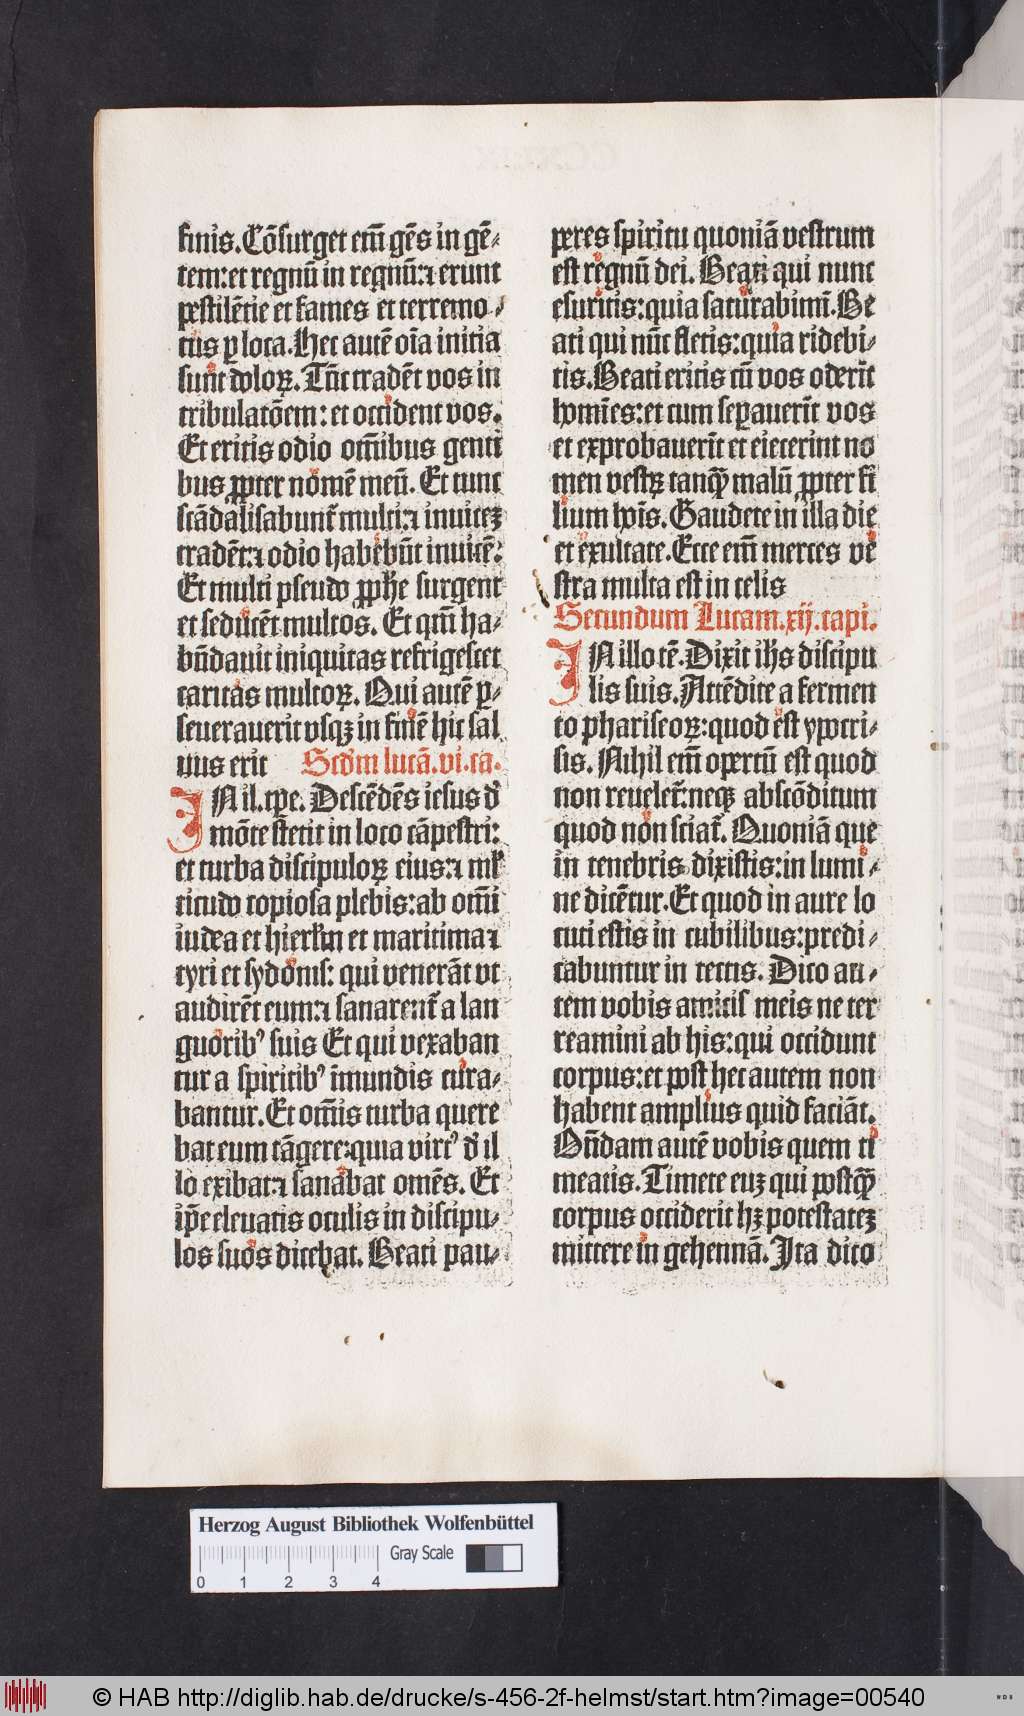 finis. Cōsurget em̄ gēs in gē-
tem: et regnū in regnū: ⁊ erunt
pestilētie et fames et terremo-
tus ꝑ loca. Hec autē oīa initia
sunt doloꝝ. Tūc tradēt vos in
tribulatōem: et occident vos.
Et eritis odio om̄ibus genti
bus ꝓpter nomē meū. Et tunc
scādalisabunt̄ multi: ⁊ inuiceꝫ
tradēt: ⁊ odio habebūt inuicē:
Et multi pseudo ꝓphē surgent
et seducēt multos. Et qm̄ ha-
būdauit iniquitas refrigescet
caritas multoꝝ. Qui autē ꝑ-
seuerauerit vsqꝫ in finē hic sal
uus erit
Scd̄m lucā. vi. ca.
IN il. tpe. Descēdēs iesus d̄
mōte stetit in loco cāpestri:
et turba discipuloꝝ eius: ⁊ ml̄
titudo copiosa plebis: ab om̄i
iudea et hierl̄m et maritima ⁊
tyri et sydonis: qui venerāt vt
audirēt eum: ⁊ sanarent̄ a lan
guoribꝰ suis Et qui vexaban
tur a spiritibꝰ īmundis cura-
bantur. Et om̄is turba quere
bat eum tāgere: quia virtꝰ d̄ il
lo exibat: ⁊ sanabat omēs. Et
ip̄e eleuatis oculis in discipu-
los suos dicebat. Beati pau-
peres spiritu quoniā vestrum
est regnū dei. Beati qui nunc
esuritis: quia saturabimī. Be
ati qui nūc fletis: quia ridebi-
tis. Beati eritis cū vos oderīt
homīes: et cum seꝑauerīt vos
et exprobauerīt et eiecerint no
men vestꝝ tanqꝫ̄ malū ꝓpter fi
lium hoīs. Gaudete in illa die
et exultate. Ecce em̄ merces ve
stra multa est in celis
Secundum Lucam. xij. capi.
IN illo tē. Dixit ih̄s discipu
lis suis. Attēdite a fermen
to phariseoꝝ: quod est ypocri-
sis. Nihil em̄ opertū est quod
non reuelet̄: neqꝫ abscōditum
quod non sciat̄. Quoniā que
in tenebris dixistis: in lumi-
ne dicētur. Et quod in aure lo
cuti estis in cubilibus: predi-
cabuntur in tectis. Dico au-
tem vobis amicis meis ne ter
reamini ab his: qui occidunt
corpus: et post hec autem non
habent amplius quid faciāt.
Oñdam autē vobis quem ti
meatis. Timete euꝫ qui postqꝫ̄
corpus occiderit hꝫ potestateꝫ
mittere in gehennā. Ita dico
Herzog August Bibliothek Wolfenbüttel
Gray Scale
0 1 2 3 4
© HAB http://diglib.hab.de/drucke/s-456-2f-helmst/start.htm?image=00540